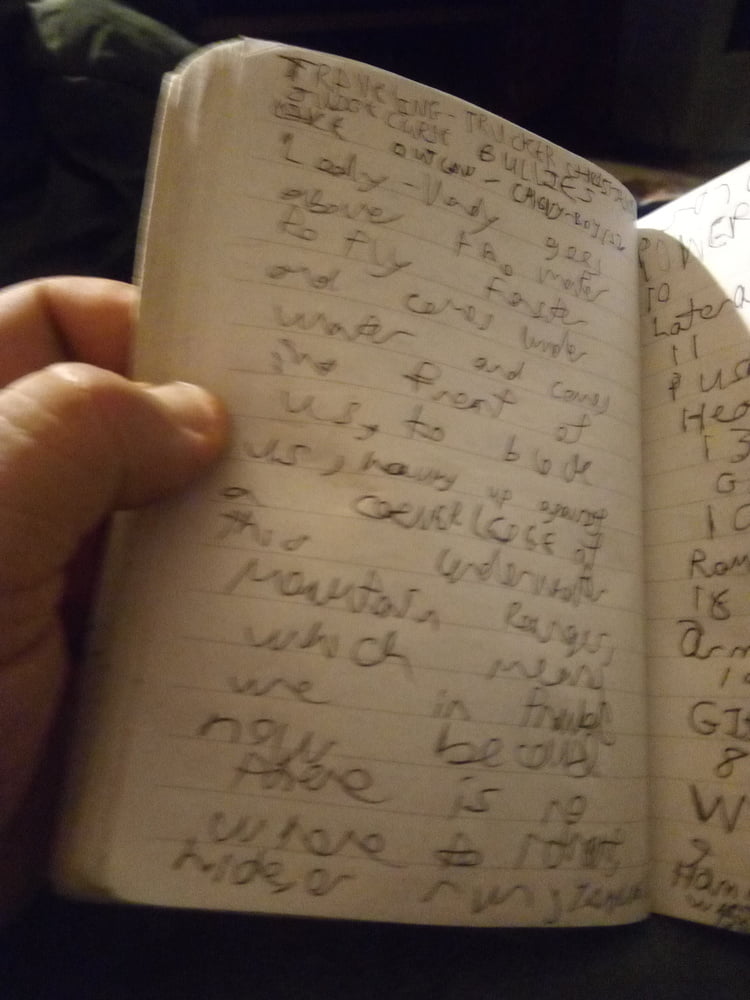 TRAVELING-TRUCKER
JUDGE CURE BULLIES
LIKE OUTLAW-
Lady-Vady goes
above the water
to fly faster
and comes under
water and comes
in the front of
us, to block
us, having up against
a CORNER/CASE of
this underwater
mountain Ranges,
which means
we in trouble
now because
there is no
where to retreat,
hide, or run,
POWER
10
Latera
11
Pus
Hea
13
G
10
Ram
18
Arm
GI
8
W
9
Ham